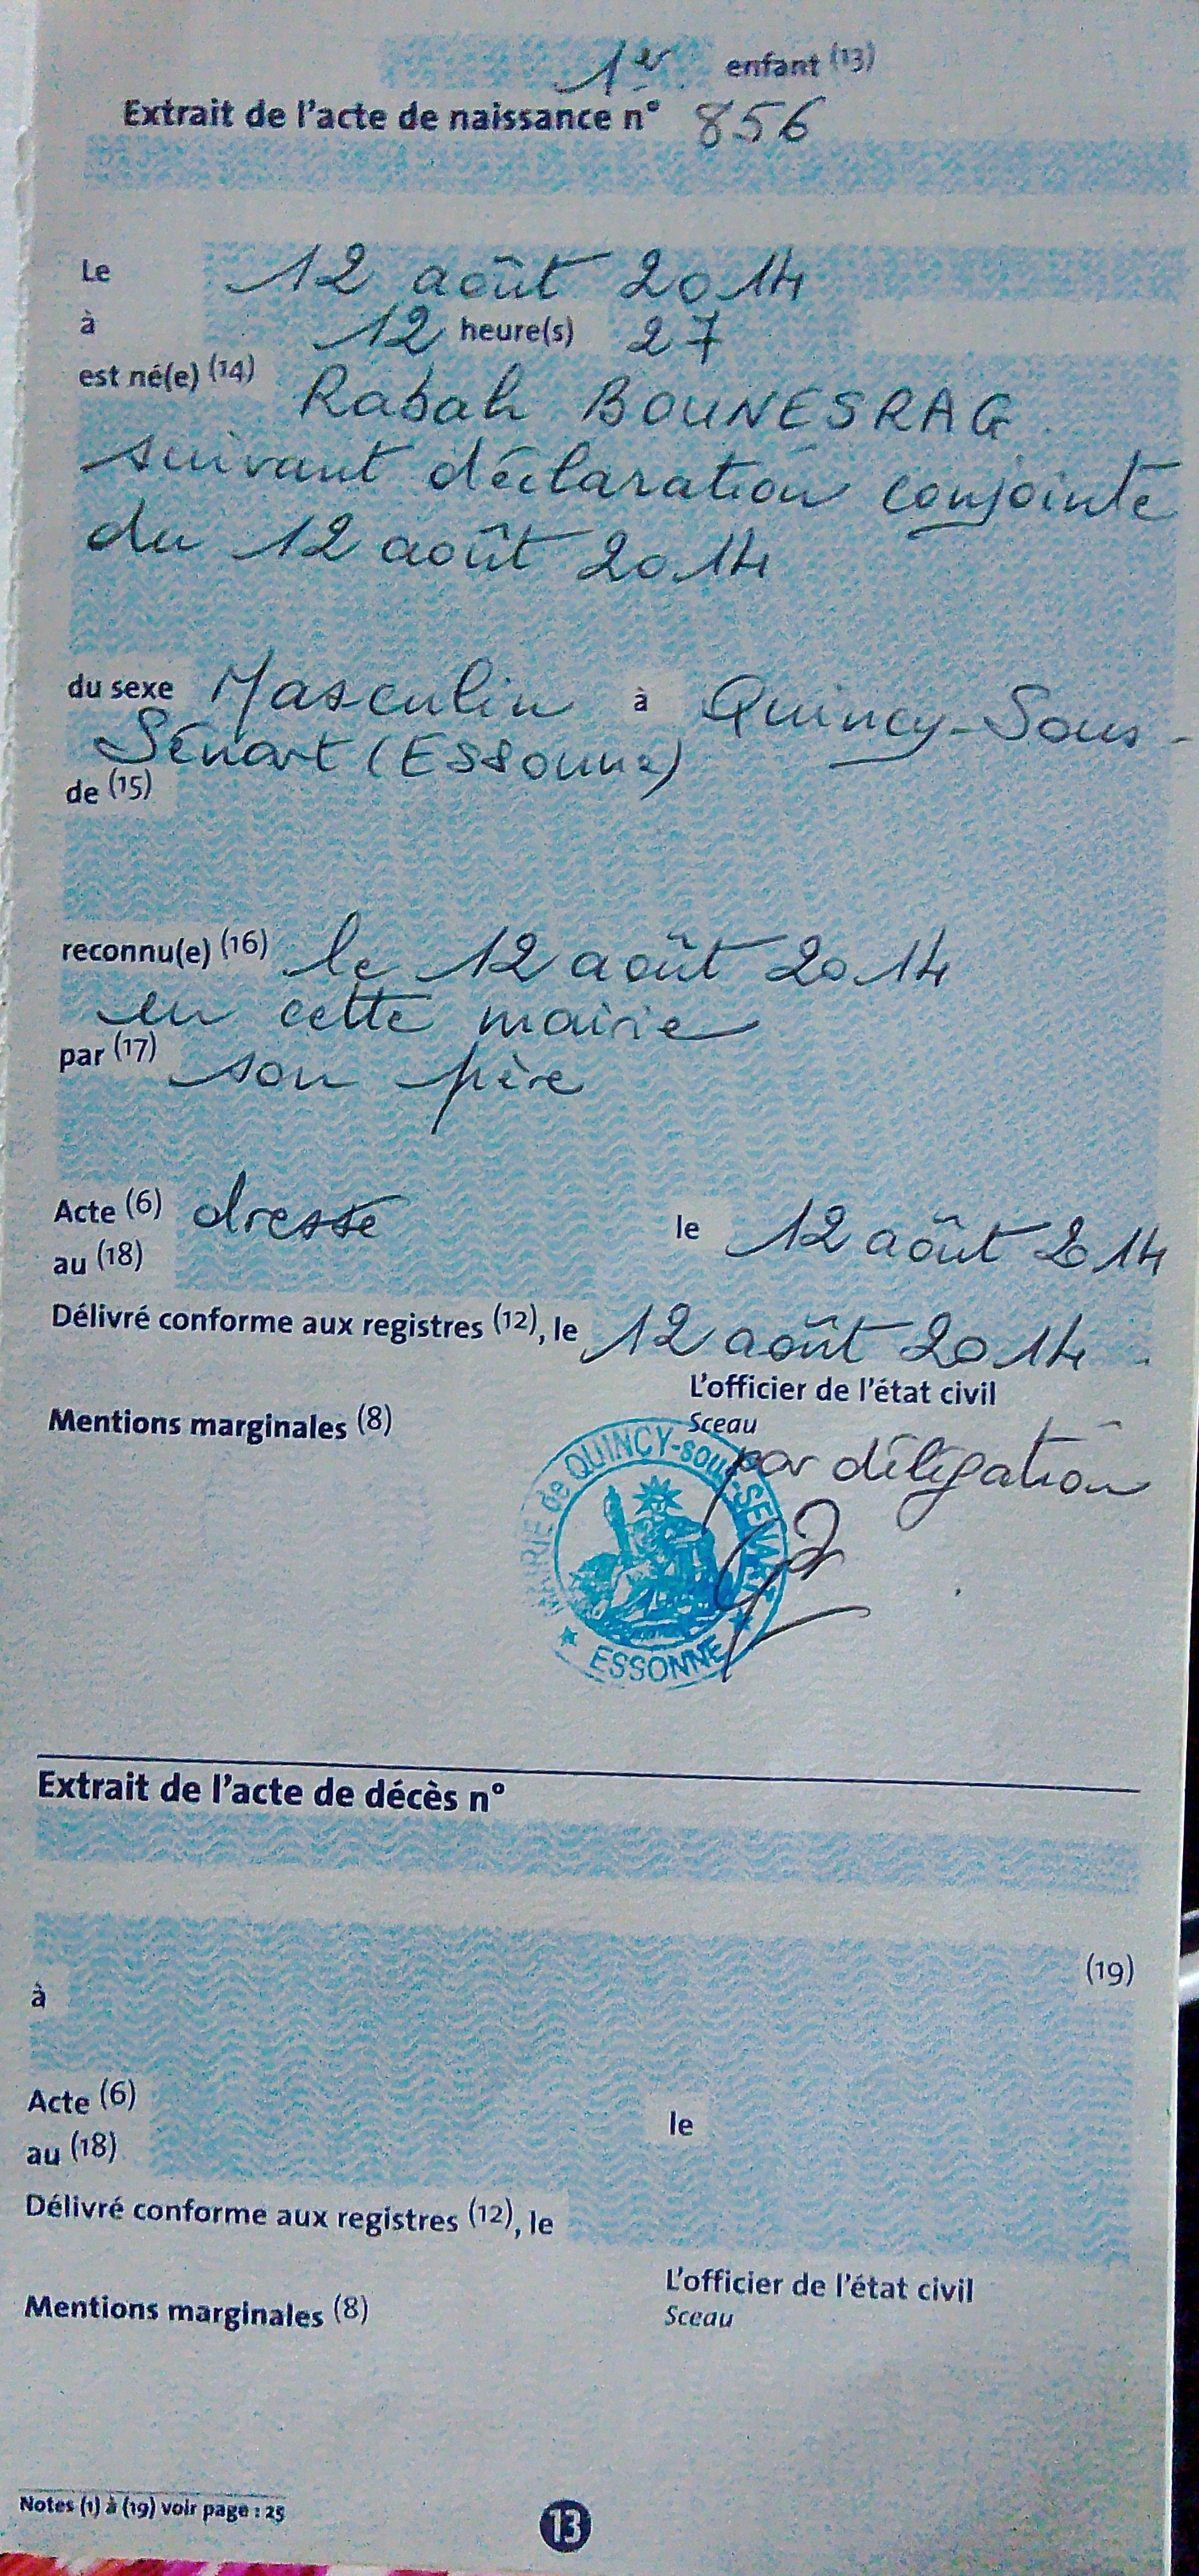 1er enfant (13)
Extrait de l'acte de naissance n° 856
Le 12 août 2014
à 12 heure(s) 27
est né(e) (14) Rabah BOUNESRAG
suivant déclaration conjointe
du 12 août 2014
du sexe Masculin à Quincy-Sous-
Sénart (Essonne)
de (15)
reconnu(e) (16) le 12 août 2014
en cette mairie
par (17) son père
Acte (6) dressé le 12 août 2014
au (18)
Délivré conforme aux registres (12), le 12 août 2014
L'officier de l'état civil
Mentions marginales (8) Sceau
par délégation
MAIRIE de QUINCY-sous-SÉNART
ESSONNE
Extrait de l'acte de décès n°
(19)
à
Acte (6) le
au (18)
Délivré conforme aux registres (12), le
L'officier de l'état civil
Mentions marginales (8) Sceau
Notes (1) à (19) voir page : 25
13